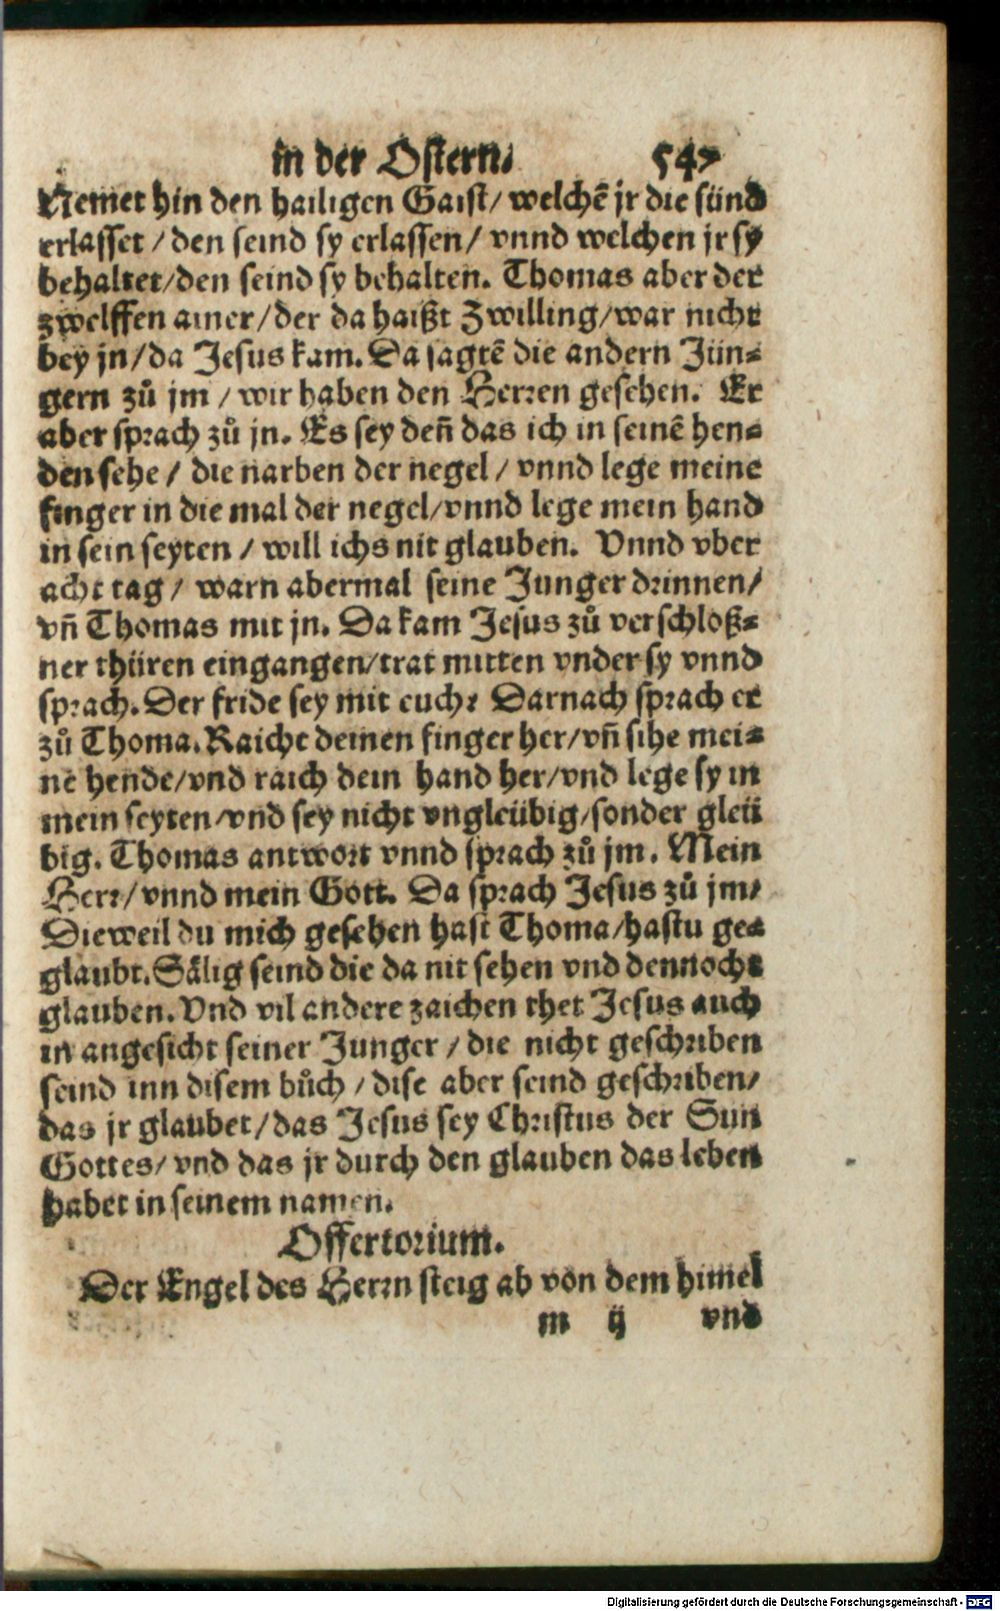 in der Ostern. 547
Nemet hin den hailigen Gaist/ welchẽ jr die sünd
erlasset / den seind sy erlassen/ vnnd welchen jr sy
behaltet/den seind sy behalten. Thomas aber der
zwelffen ainer/der da haißt Zwilling/war nicht
bey jn/da Jesus kam. Da sagtẽ die andern Jün-
gern zů jm / wir haben den Herren gesehen. Er
aber sprach zů jn. Es sey deñ das ich in seinẽ hen-
den sehe / die narben der negel / vnnd lege meine
finger in die mal der negel/vnnd lege mein hand
in sein seyten / will ichs nit glauben. Vnnd vber
acht tag / warn abermal seine Junger drinnen/
vñ Thomas mit jn. Da kam Jesus zů verschloß-
ner thüren eingangen/trat mitten vnder sy vnnd
sprach. Der fride sey mit euch: Darnach sprach er
zů Thoma. Raicht deinen finger her/vñ sihe mei-
ne hende/vnd raich dein hand her/vnd lege sy in
mein seyten/vnd sey nicht vngleübig/sonder gleü
big. Thomas antwort vnnd sprach zů jm. Mein
Herr/vnnd mein Gott. Da sprach Jesus zů jm/
Dieweil du mich gesehen hast Thoma/hastu ge-
glaubt. Sälig seind die da nit sehen vnd dennocht
glauben. Vnd vil andere zaichen thet Jesus auch
in angesicht seiner Junger / die nicht geschriben
seind inn disem bůch / dise aber seind geschriben/
das jr glaubet/das Jesus sey Christus der Sun
Gottes/ vnd das jr durch den glauben das leben
habet in seinem namen.
Offertorium.
Der Engel des Herrn steig ab von dem himel
m ij vnd
Digitalisierung gefördert durch die Deutsche Forschungsgemeinschaft - DFG